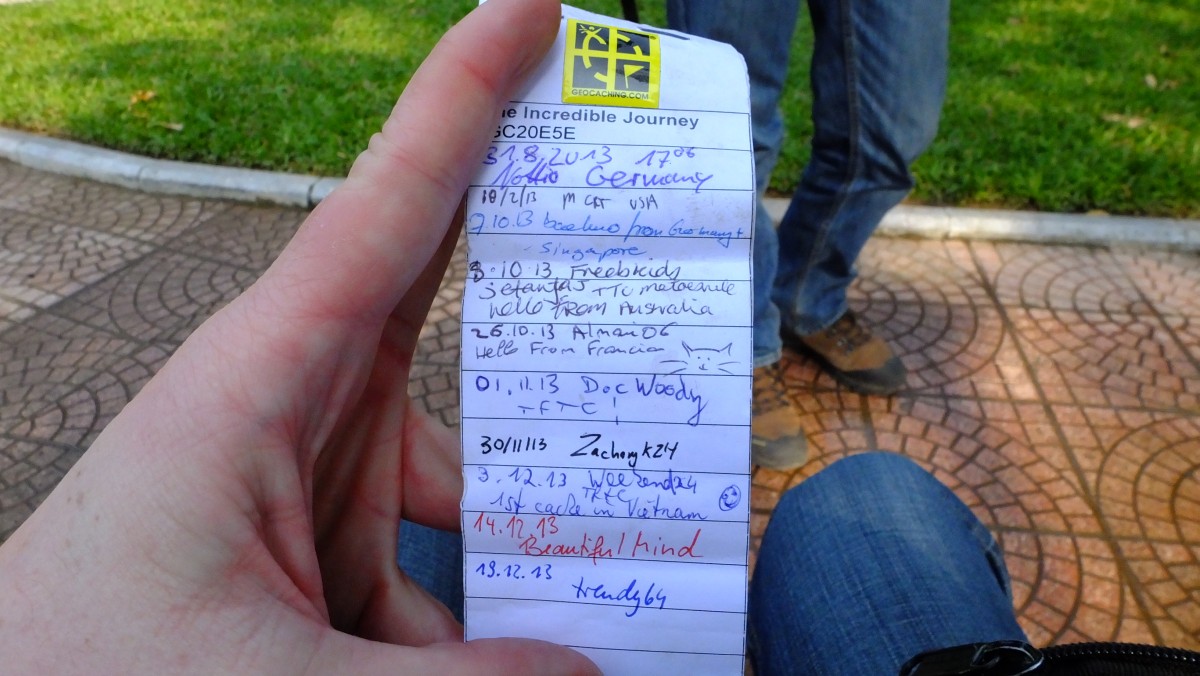 GEOCACHING.COM
Incredible Journey
GC20E5E
31.8.2013 17 06
Germany
18/2/13 USA
7.10.13 from Germany +
Singapore
8.10.13 Freebkids
TTC
hello from Australia
26.10.13 Almari06
Hello From Francia
01.11.13 Doc Woody
TFTC!
30/11/13 Zachary k24
3.12.13
1st cache in Vietnam
14.12.13
Beautiful Mind
19.12.13
trendy64